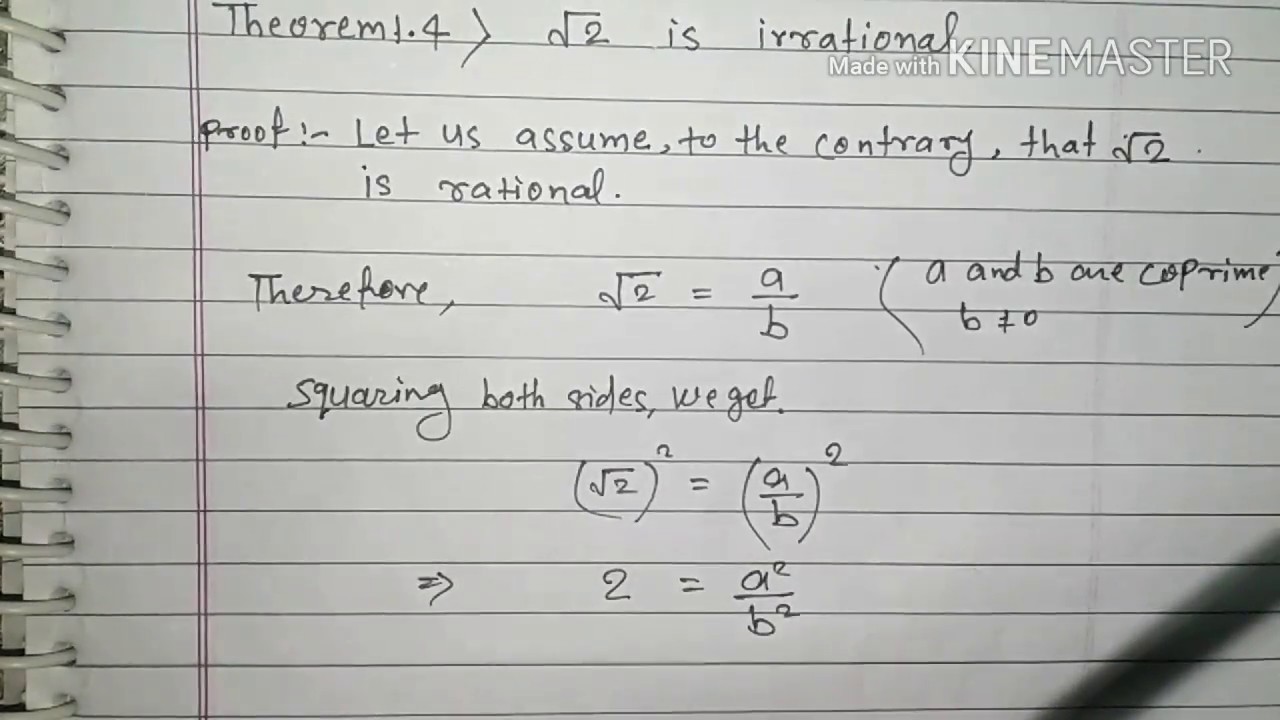 Theorem 1.4 ) √2 is irrational.
Made with KINEMASTER
Proof :- Let us assume, to the contrary, that √2 .
is rational.
Therefore, √2 = a/b ( a and b are coprime
b ≠ 0 )
Squaring both sides, we get.
(√2)² = (a/b)²
⇒ 2 = a²/b²